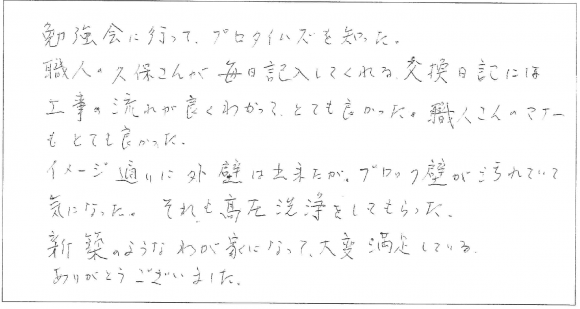 勉強会に行って、プロタイムズを知った。
職人の久保さんが毎日記入してくれる、交換日記には
工事の流れが良くわかって、とても良かった。職人さんのマナー
もとても良かった。
イメージ通りに外壁は出来たが、ブロック壁が汚れていて
気になった。それも高圧洗浄をしてもらった。
新築のようなわが家になって、大変満足している。
ありがとうございました。